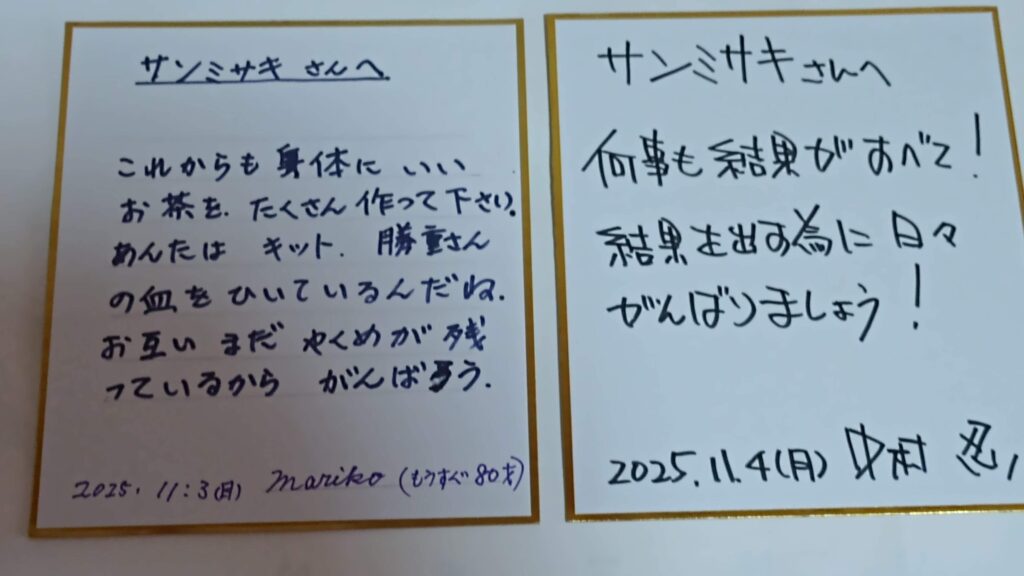 サンミサキ さんへ
これからも 身体に いい
お茶を、たくさん 作って 下さい。
あんたは キット、勝重さん
の血を ひいて いるんだね、
お互い まだ やくめが 残
っているから がんばろう、
2025. 11:3(月) mariko (もうすぐ80才)
サンミサキさんへ
何事も結果がすべて!
結果を出す為に日々
がんばりましょう!
2025.11.4(月) 中村 忍